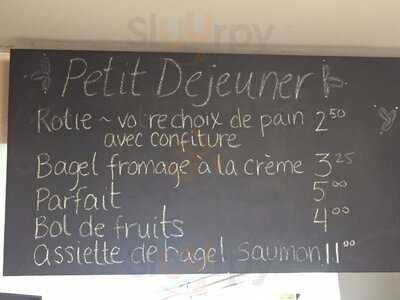 Petit Dejeuner
Rotie ~ votre choix de pain 2.50
avec confiture
Bagel fromage à la crème 3.25
Parfait 5.00
Bol de fruits 4.00
assiette de bagel saumon 11.00
Sluurpy